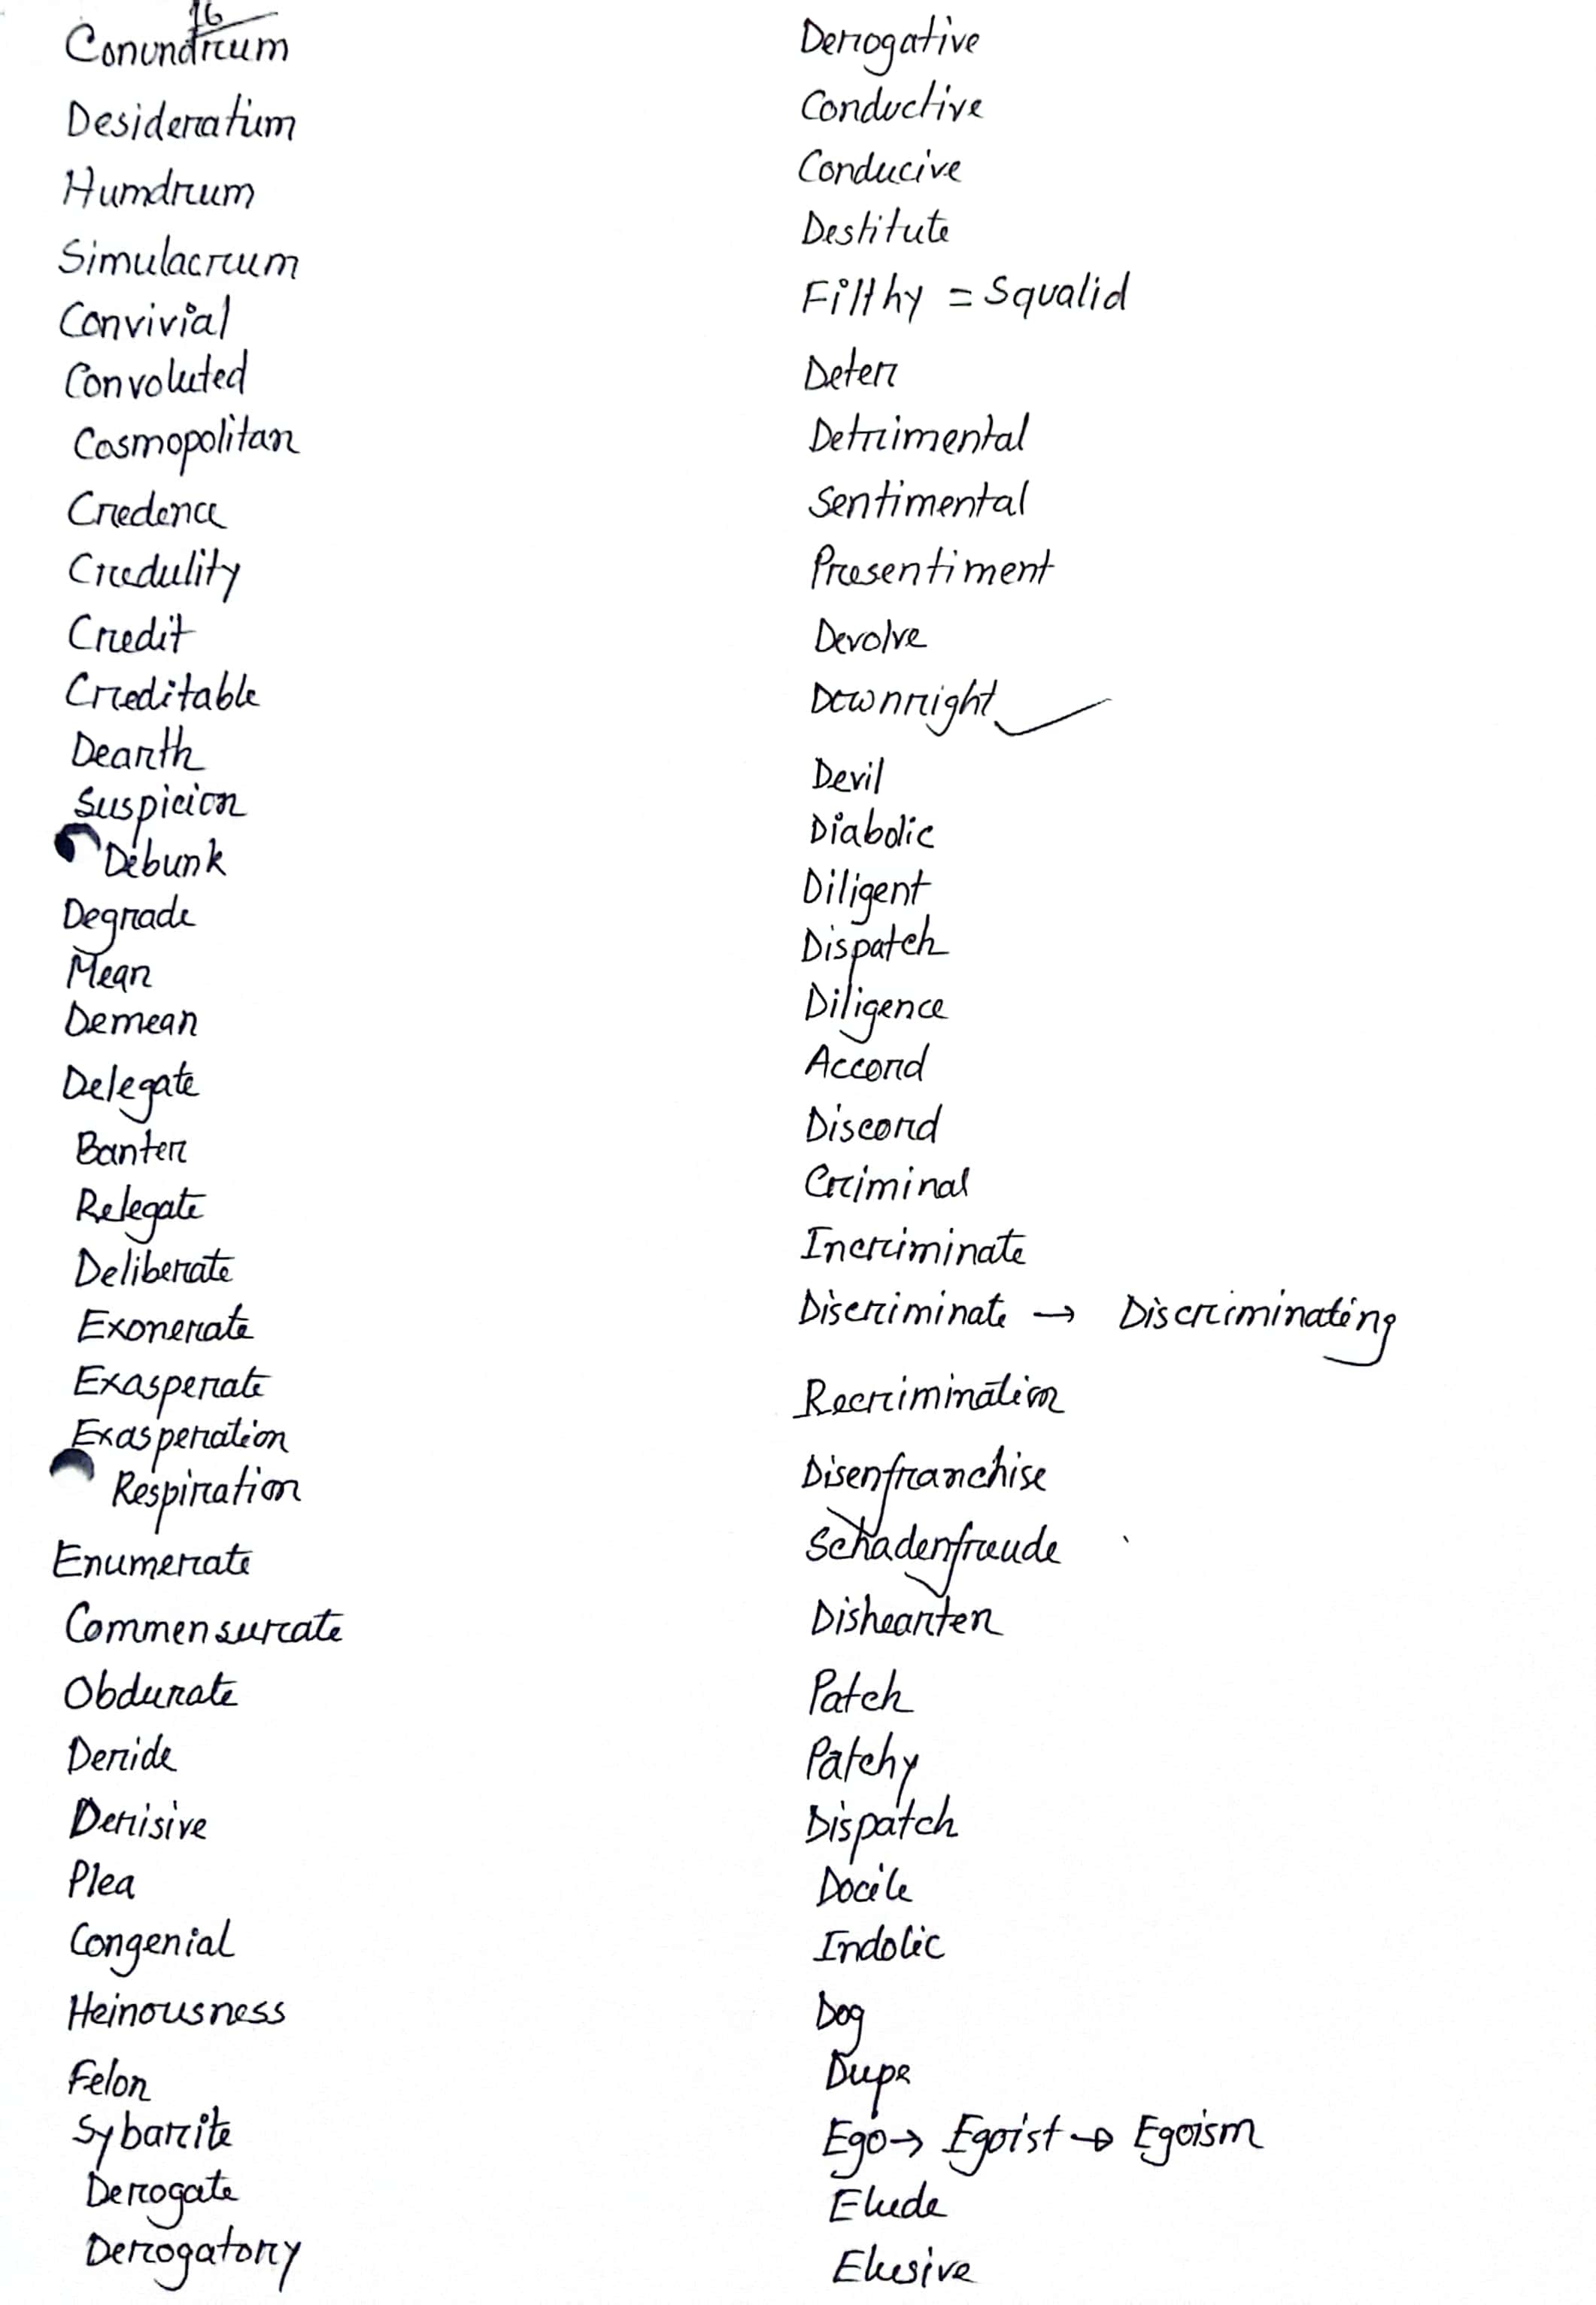 16
Conundrum
Desideratum
Humdrum
Simulacrum
Convivial
Convoluted
Cosmopolitan
Credence
Credulity
Credit
Creditable
Dearth
Suspicion
Debunk
Degrade
Mean
Demean
Delegate
Banter
Relegate
Deliberate
Exonerate
Exasperate
Exasperation
Respiration
Enumerate
Commensurate
Obdurate
Deride
Derisive
Plea
Congenial
Heinousness
Felon
Sybarite
Derogate
Derogatory
Derogative
Conductive
Conducive
Destitute
Filthy = Squalid
Deter
Detrimental
Sentimental
Presentiment
Devolve
Downright
Devil
Diabolic
Diligent
Dispatch
Diligence
Accord
Discord
Criminal
Incriminate
Discriminate → Discriminating
Recrimination
Disenfranchise
Schadenfreude
Dishearten
Patch
Patchy
Dispatch
Docile
Indolic
Dog
Dupe
Ego → Egoist → Egoism
Elude
Elusive